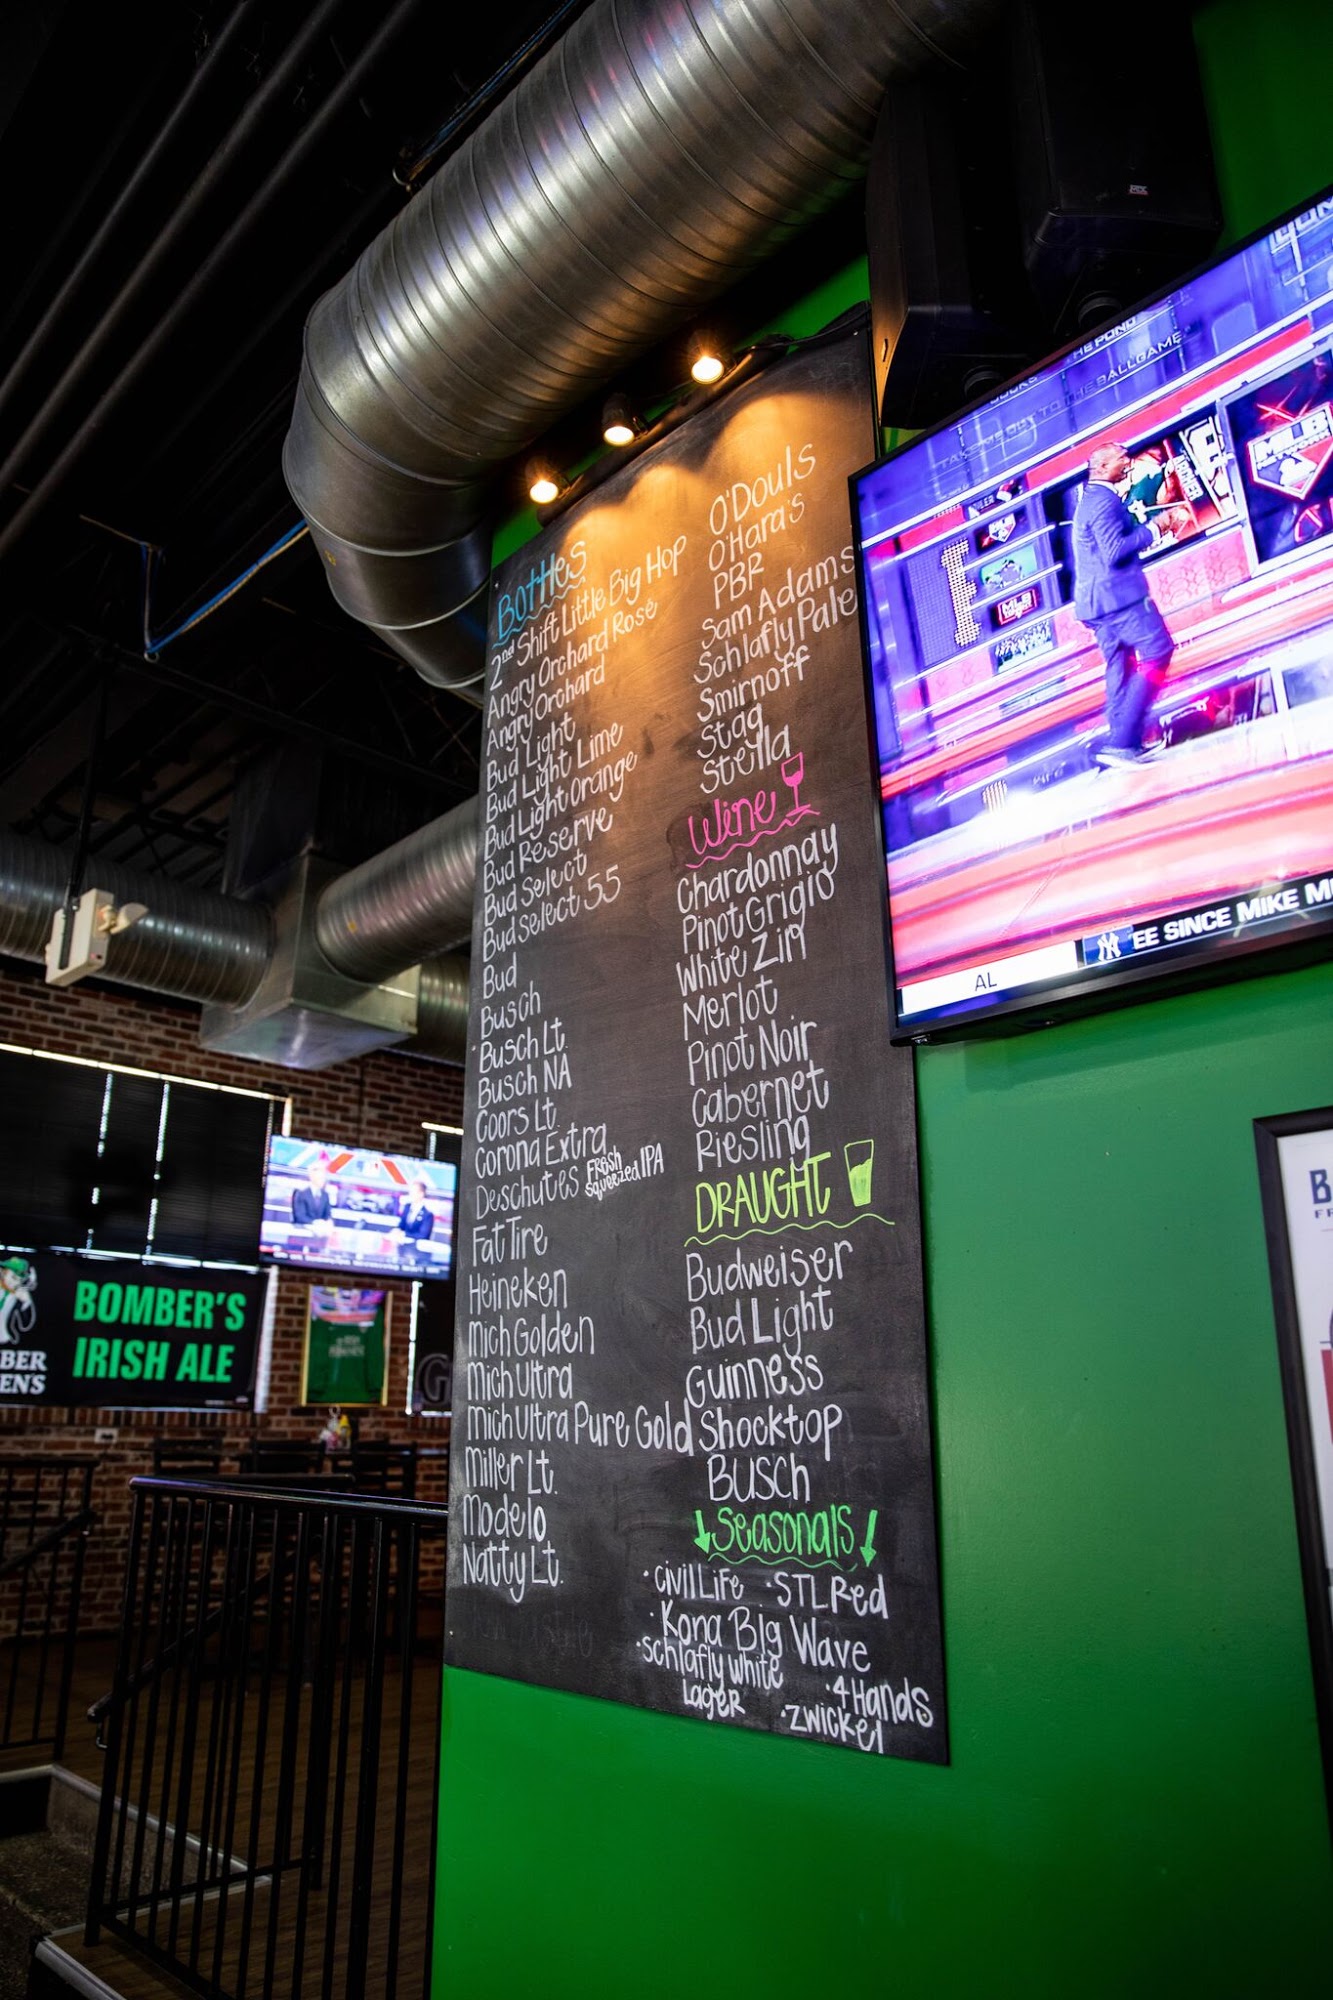 Bottles
2nd Shift Little Big Hop
Angry Orchard Rosé
Angry Orchard
Bud Light
Bud Light Lime
Bud Light Orange
Bud Reserve
Bud Select
Bud Select 55
Bud
Busch
Busch Lt.
Busch NA
Coors Lt.
Corona Extra
Deschutes Fresh Squeezed IPA
Fat Tire
Heineken
Mich Golden
Mich Ultra
Mich Ultra Pure Gold
Miller Lt.
Modelo
Natty Lt.
O'Douls
O'Hara's
PBR
Sam Adams
Schlafly Pale
Smirnoff
Stag
Stella
Wine
Chardonnay
Pinot Grigio
White Zin
Merlot
Pinot Noir
Cabernet
Riesling
DRAUGHT
Budweiser
Bud Light
Guinness
Shocktop
BUSCH
Seasonals
·Civil Life ·STL Red
·Kona Big Wave
·Schlafly White
Lager
·4 Hands
·Zwickel
TAKE ME OUT TO THE BALLGAME
MLB
MLB
AL
EE SINCE MIKE M
BOMBER'S
IRISH ALE
BER
ENS